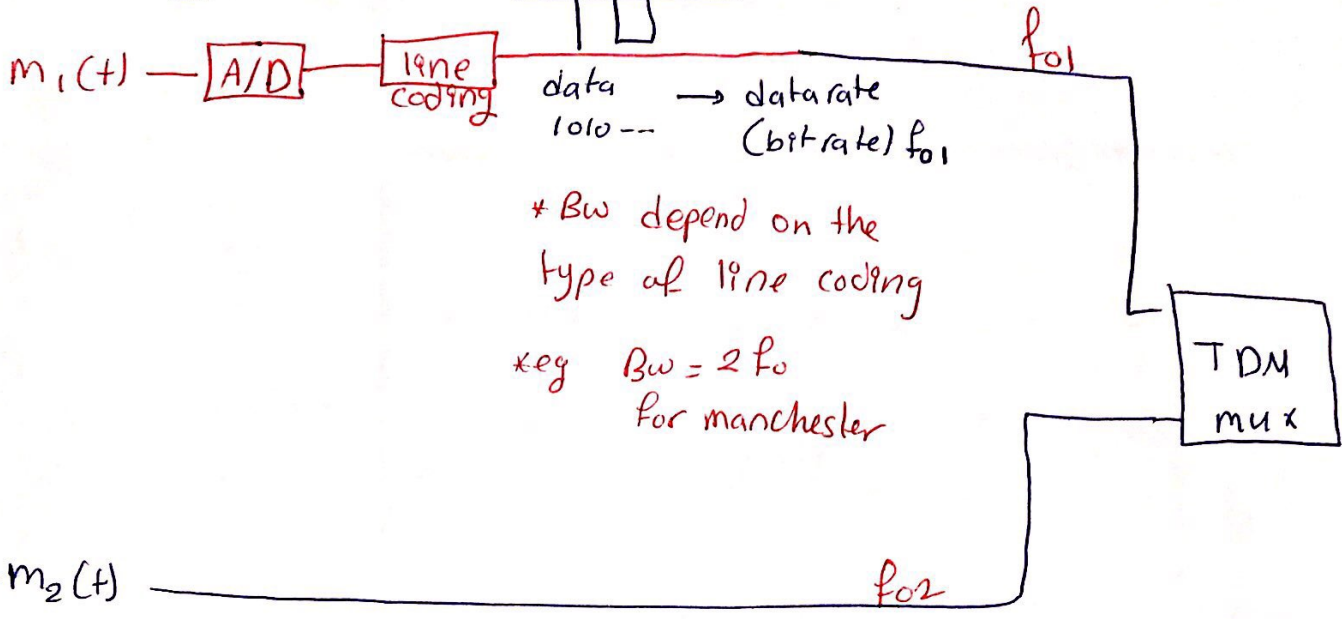 m₁(t) A/D line coding f₀₁
data → data rate
1010 -- (bit rate) f₀₁
* Bw depend on the
type of line coding
*eg Bw = 2 f₀
for manchester
TDM
mux
m₂(t) f₀₂